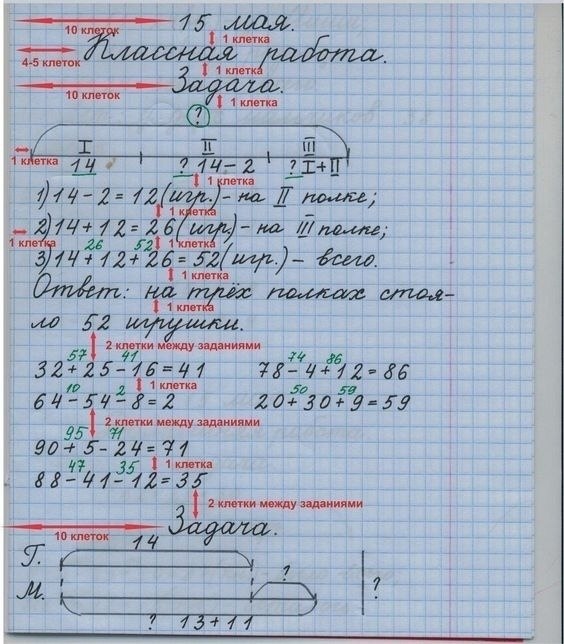 10 клеток 15 мая.
1 клетка
4-5 клеток Классная работа.
1 клетка
10 клеток Задача.
1 клетка
?
I II III
1 клетка 14 ? 14-2 ? I+II
1 клетка
1) 14-2=12 (игр.)- на II полке;
1 клетка
2) 14+12=26 (игр.)- на III полке;
1 клетка 26 52 1 клетка
3) 14+12+26=52 (игр.)- всего.
1 клетка
Ответ: на трёх полках стоя-
1 клетка
ло 52 игрушки.
2 клетки между заданиями
57 41 74 86
32+25-16=41 78-4+12=86
1 клетка
10 2 50 59
64-54-8=2 20+30+9=59
2 клетки между заданиями
95 71
90+5-24=71
47 35 1 клетка
88-41-12=35
2 клетки между заданиями
10 клеток Задача.
14
Г.
?
М. ?
? 13+11